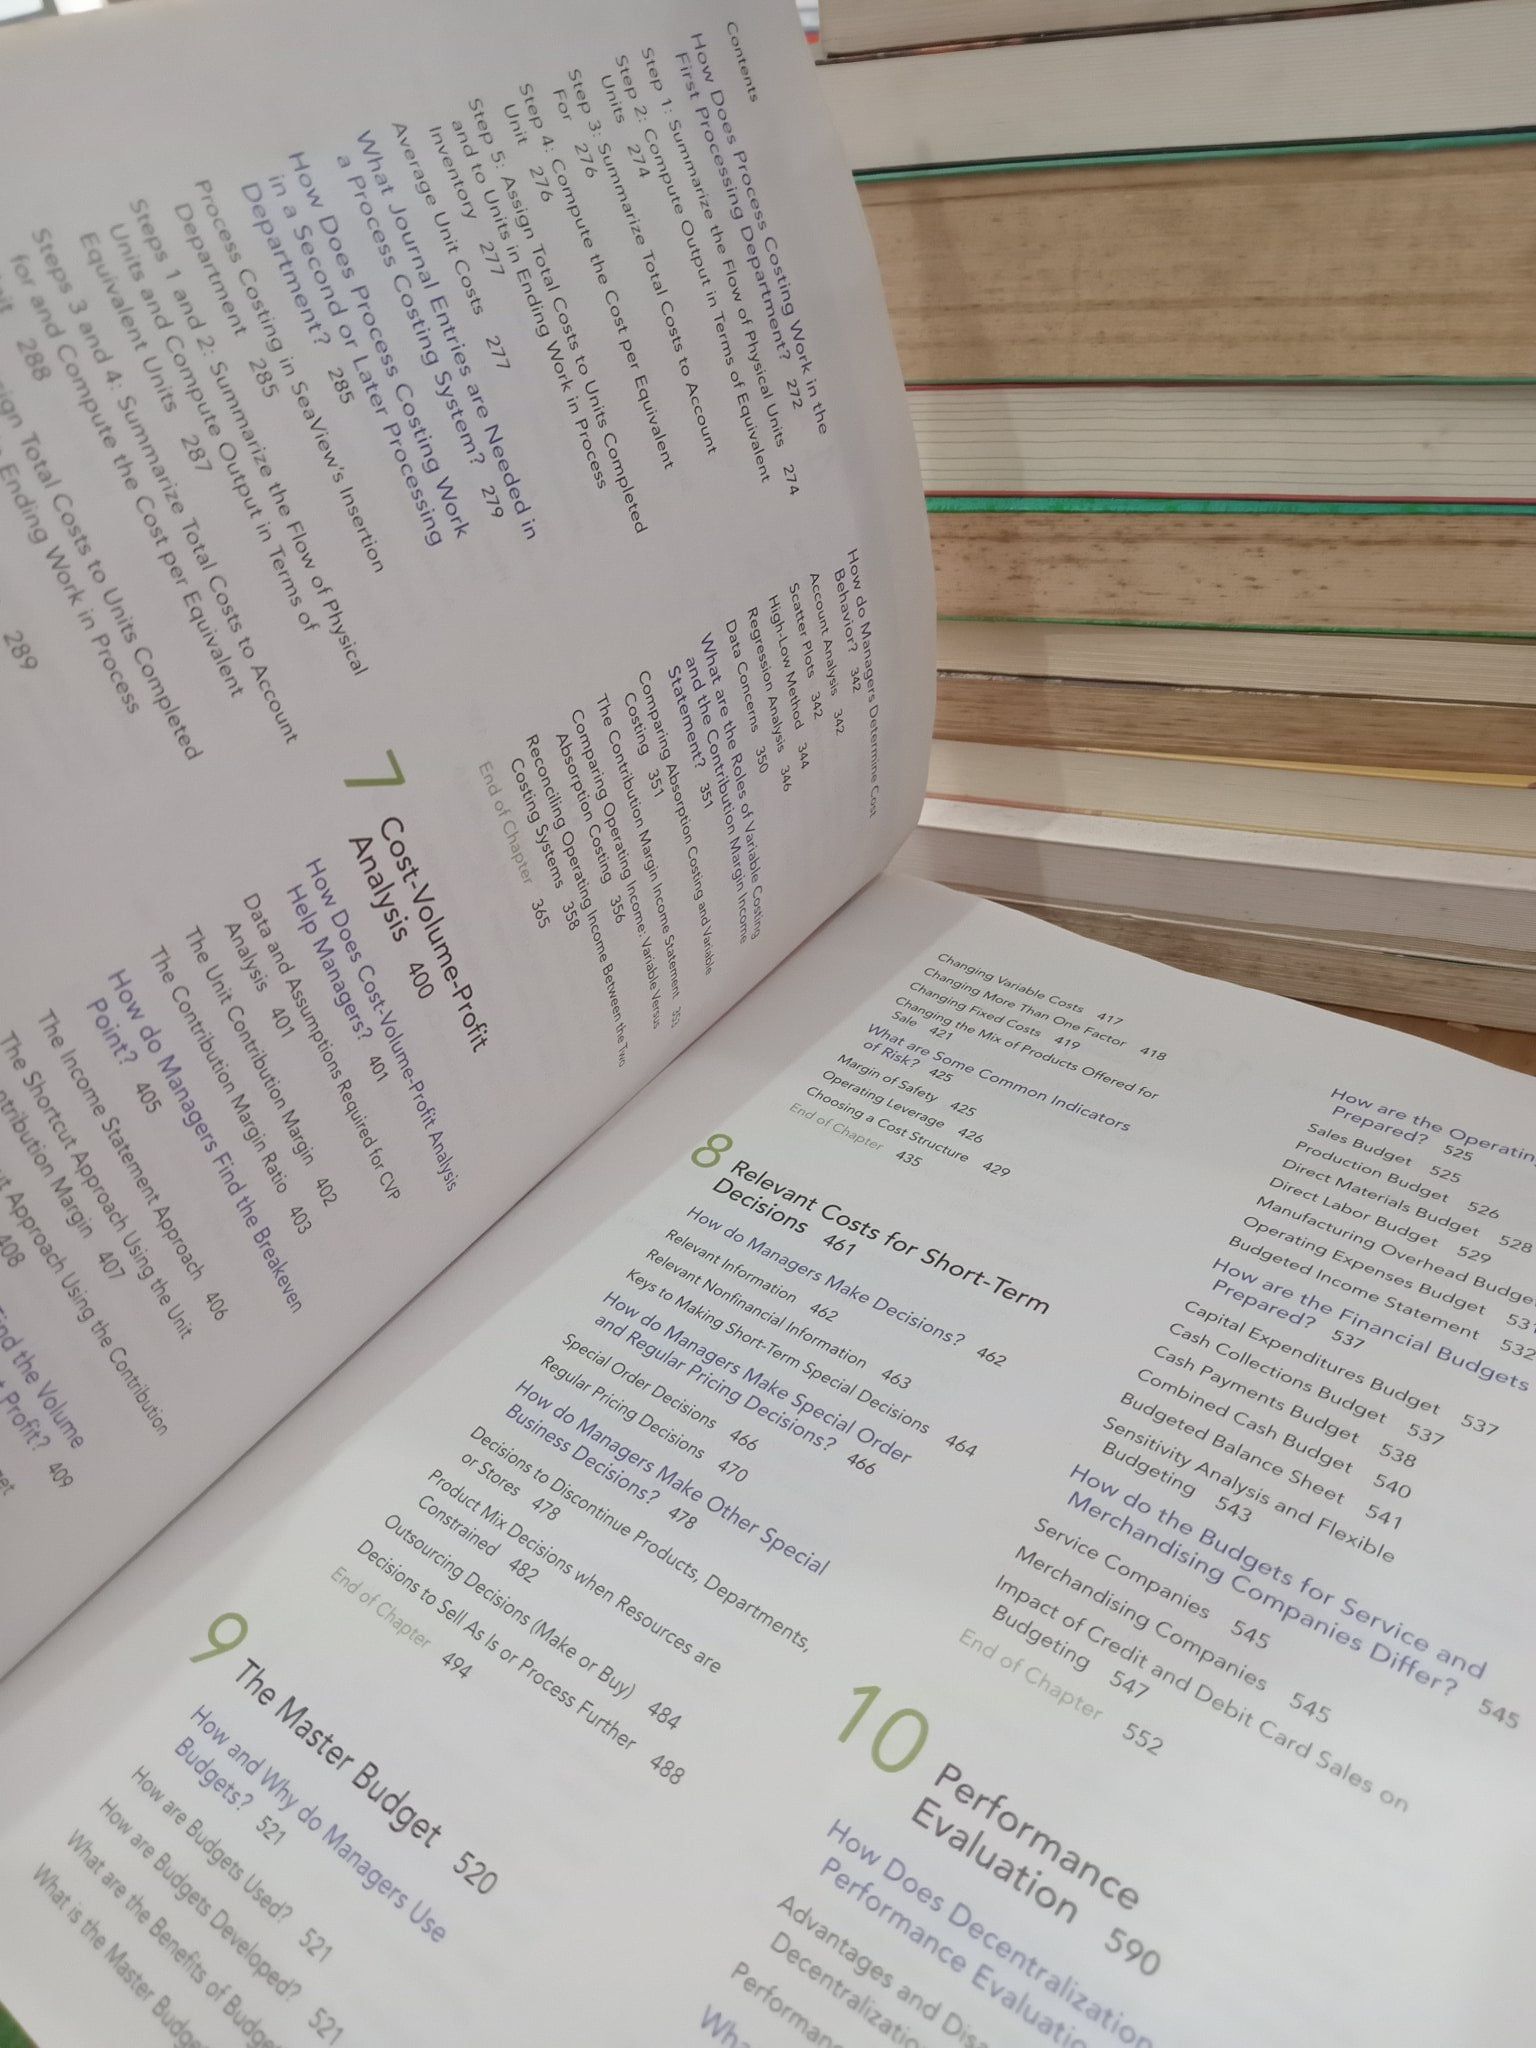 Contents
How Does Process Costing Work in the
First Processing Department? 272
Step 1: Summarize the Flow of Physical Units 274
Step 2: Compute Output in Terms of Equivalent
Units 274
Step 3: Summarize Total Costs to Account
For 276
Step 4: Compute the Cost per Equivalent
Unit 276
Step 5: Assign Total Costs to Units Completed
and to Units in Ending Work in Process
Inventory 277
Average Unit Costs 277
What Journal Entries are Needed in
a Process Costing System? 279
How Does Process Costing Work
in a Second or Later Processing
Department? 285
Process Costing in SeaView's Insertion
Department 285
Steps 1 and 2: Summarize the Flow of Physical
Units and Compute Output in Terms of
Equivalent Units 287
Steps 3 and 4: Summarize Total Costs to Account
for and Compute the Cost per Equivalent
288
Total Costs to Units Completed
Ending Work in Process
289
How do Managers Determine Cost
Behavior? 342
Account Analysis 342
Scatter Plots 342
High-Low Method 344
Regression Analysis 346
Data Concerns 350
What are the Roles of Variable Costing
and the Contribution Margin Income
Statement? 351
Comparing Absorption Costing and Variable
Costing 351
The Contribution Margin Income Statement 353
Comparing Operating Income: Variable Versus
Absorption Costing 356
Reconciling Operating Income Between the Two
Costing Systems 358
End of Chapter 365
7 Cost-Volume-Profit
Analysis 400
How Does Cost-Volume-Profit Analysis
Help Managers? 401
Data and Assumptions Required for CVP
Analysis 401
The Unit Contribution Margin 402
The Contribution Margin Ratio 403
How do Managers Find the Breakeven
Point? 405
The Income Statement Approach 406
The Shortcut Approach Using the Unit
Margin 407
Approach Using the Contribution
408
the Volume
Profit? 409
Changing Variable Costs 417
Changing More Than One Factor 418
Changing Fixed Costs 419
Changing the Mix of Products Offered for
Sale 421
What are Some Common Indicators
of Risk? 425
Margin of Safety 425
Operating Leverage 426
Choosing a Cost Structure 429
End of Chapter 435
8 Relevant Costs for Short-Term
Decisions 461
How do Managers Make Decisions? 462
Relevant Information 462
Relevant Nonfinancial Information 463
Keys to Making Short-Term Special Decisions 464
How do Managers Make Special Order
and Regular Pricing Decisions? 466
Special Order Decisions 466
Regular Pricing Decisions 470
How do Managers Make Other Special
Business Decisions? 478
Decisions to Discontinue Products, Departments,
or Stores 478
Product Mix Decisions when Resources are
Constrained 482
Outsourcing Decisions (Make or Buy) 484
Decisions to Sell As Is or Process Further 488
End of Chapter 494
9 The Master Budget 520
How and Why do Managers Use
Budgets? 521
How are Budgets Used? 521
How are Budgets Developed? 521
What are the Benefits of
What is the Master
How are the
Prepared? 525
Sales Budget 525
Production Budget 526
Direct Materials Budget 528
Direct Labor Budget 529
Manufacturing Overhead
Operating Expenses Budget
Budgeted Income Statement 532
How are the Financial Budgets
Prepared? 537
Capital Expenditures Budget 537
Cash Collections Budget 537
Cash Payments Budget 538
Combined Cash Budget 540
Budgeted Balance Sheet 541
Sensitivity Analysis and Flexible
Budgeting 543
How do the Budgets for Service and
Merchandising Companies Differ? 545
Service Companies 545
Merchandising Companies 545
Impact of Credit and Debit Card Sales on
Budgeting 547
End of Chapter 552
10 Performance
Evaluation 590
How Does Decentralization
Performance
Advantages and